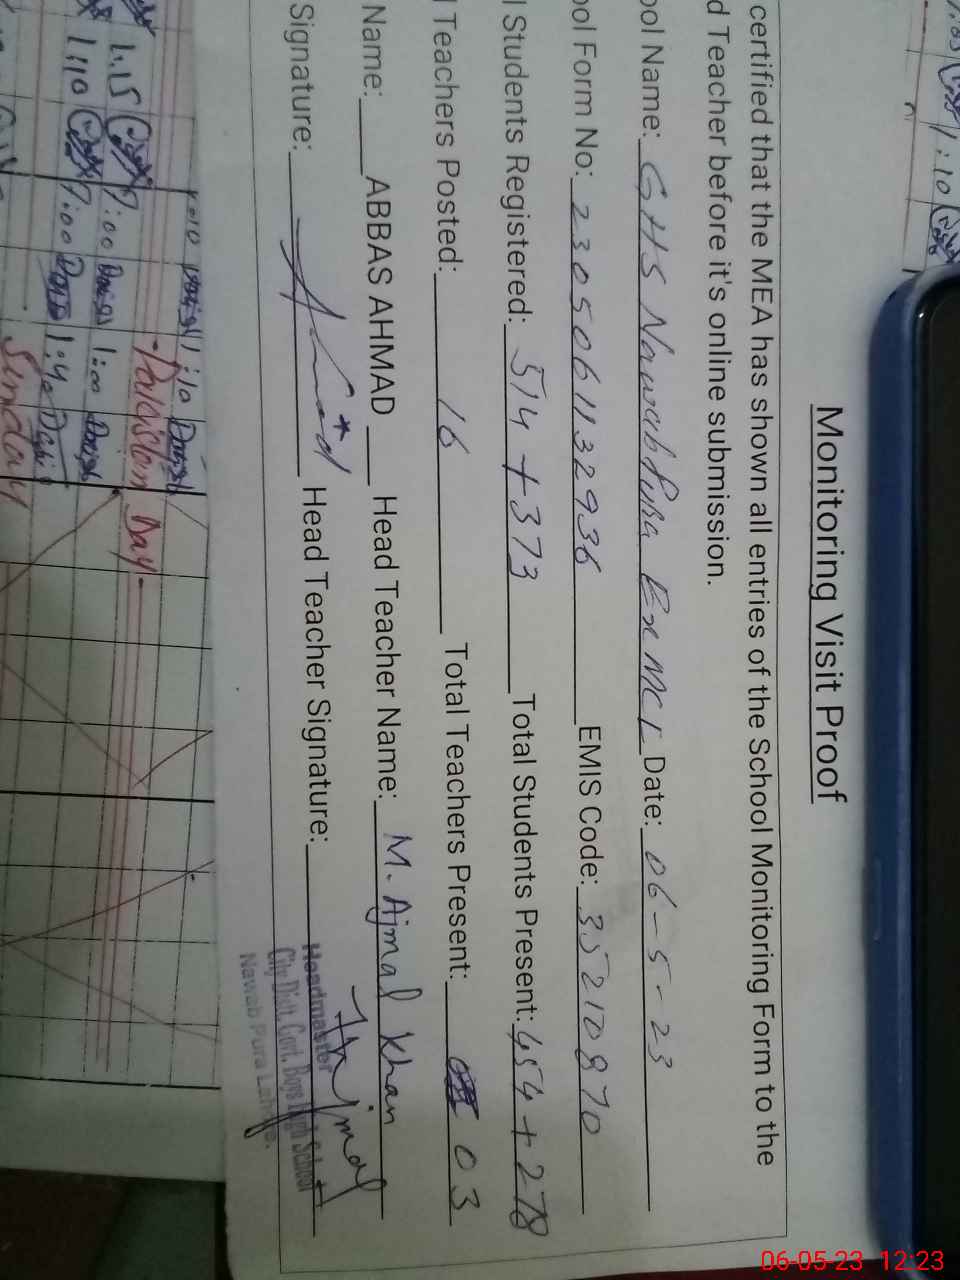 Monitoring Visit Proof
certified that the MEA has shown all entries of the School Monitoring Form to the
d Teacher before it's online submission.
ool Name: GHS Nawabpura Ex MCL Date: 06-5-23
ool Form No: 2305061132936 EMIS Code: 35210870
l Students Registered: 514 + 373 Total Students Present: 454 + 278
l Teachers Posted: 16 Total Teachers Present: 03
Name: ABBAS AHMAD Head Teacher Name: M. Ajmal Khan
Signature: Head Teacher Signature:
Headmaster
City Distt. Govt. Boys High School
Nawab Pura Lahore.
1:10
1:15 7:00 1:00
1:10 7:00 1:40
Pakistan Day.
Sunday
06-05-23 12:23